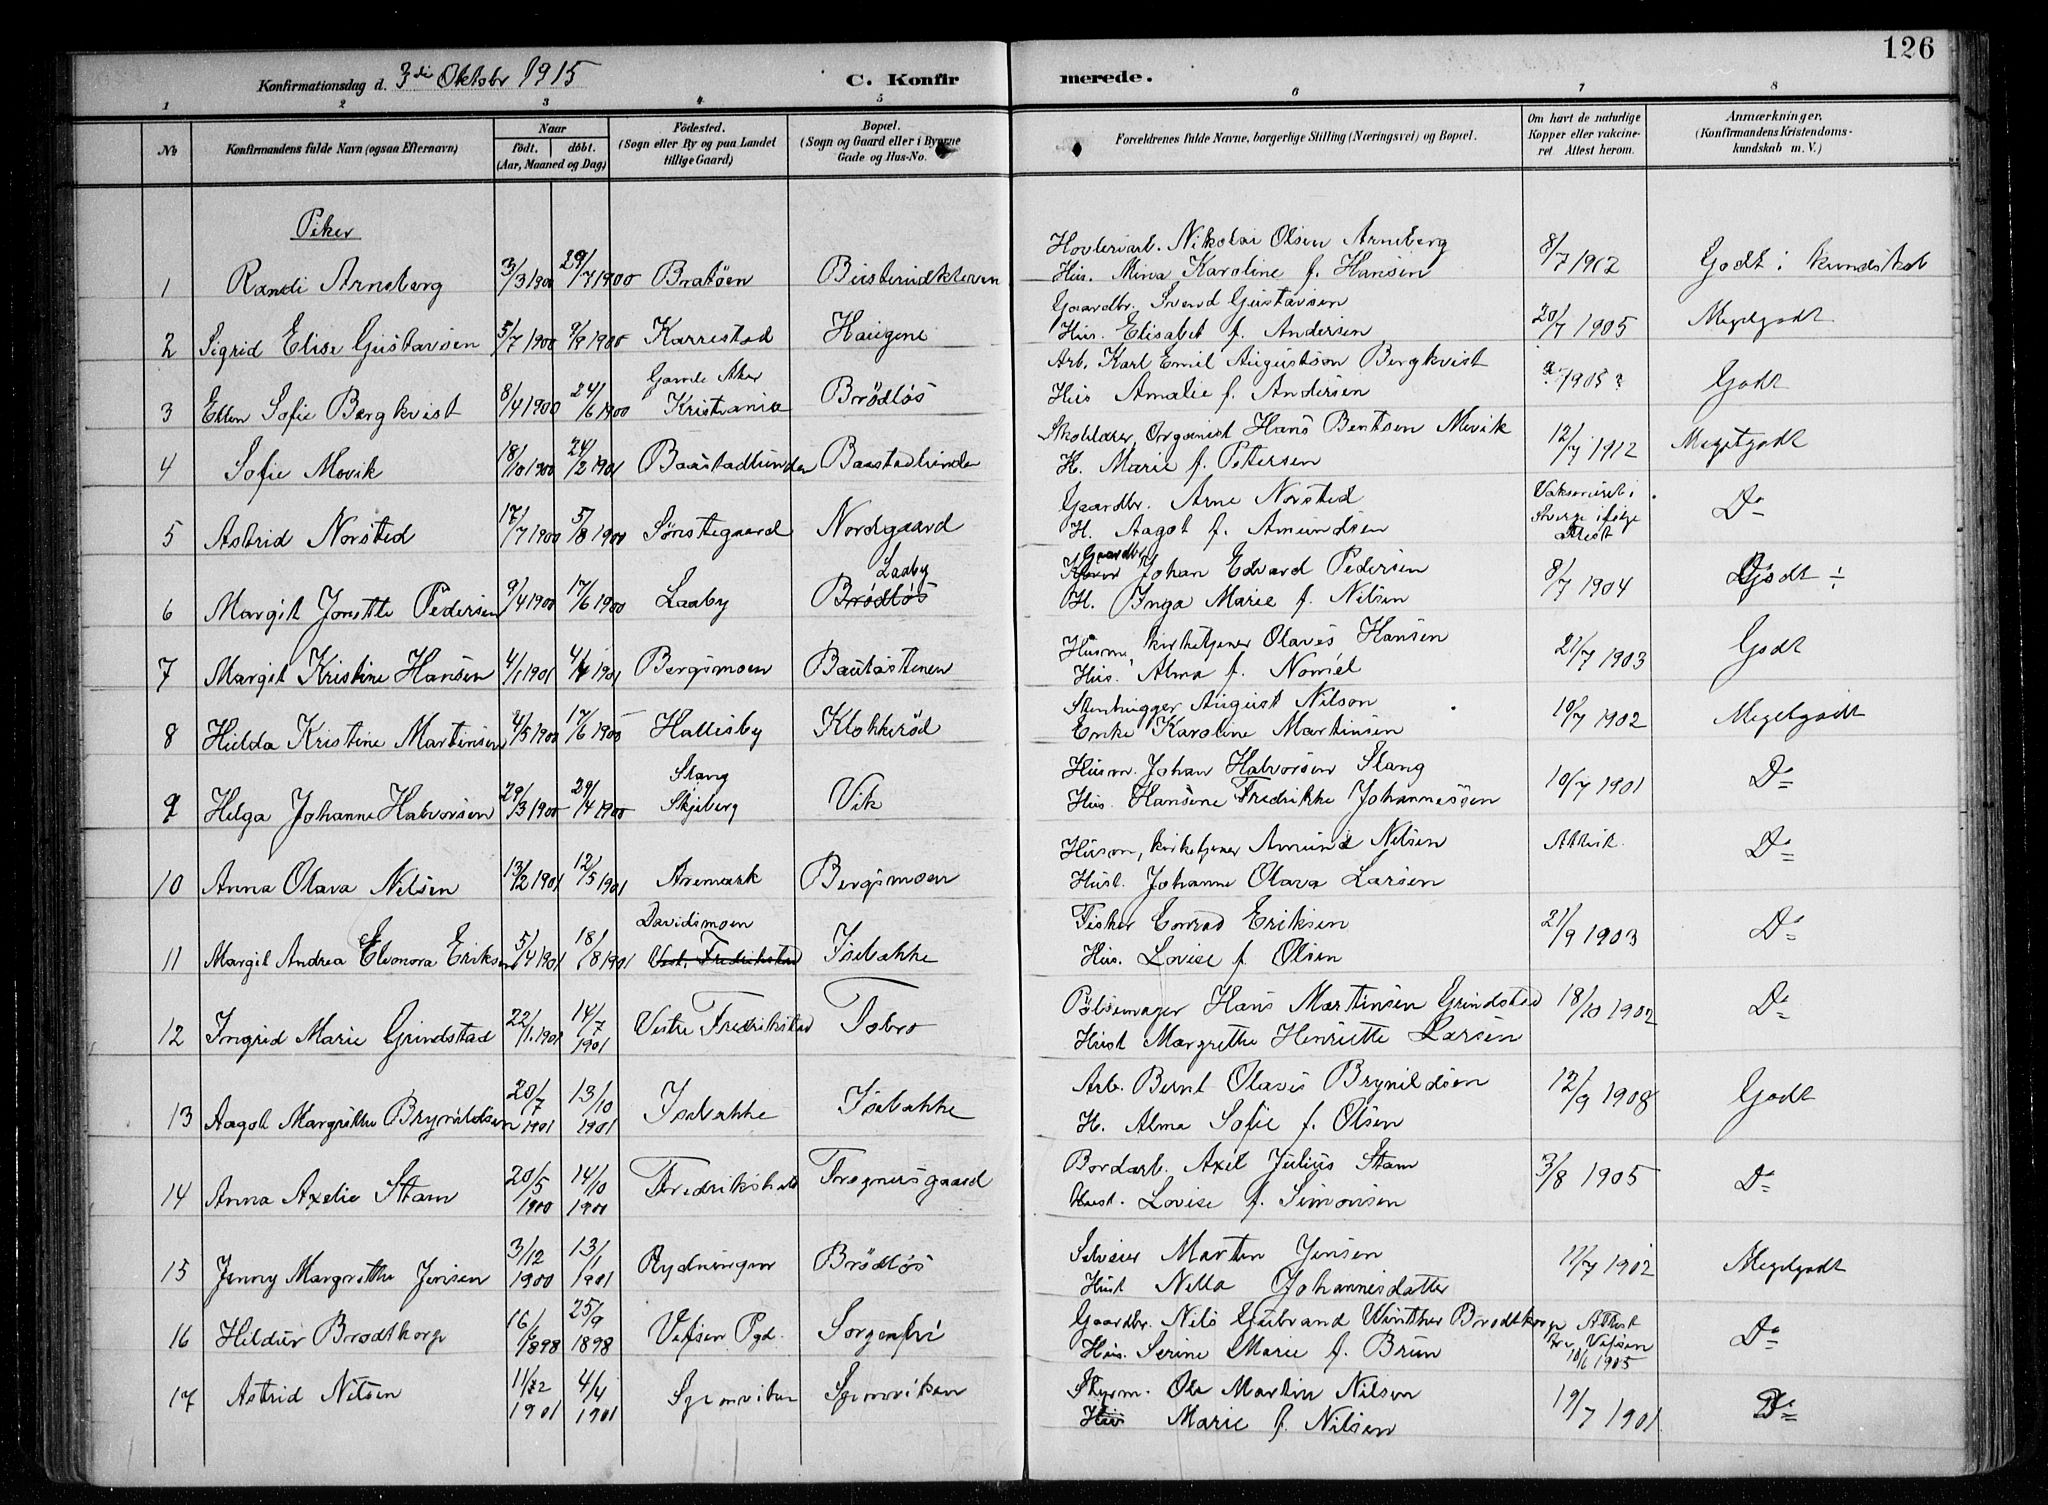 126
Konfirmationsdag d. 3die Oktobr 1915 C. Konfirmerede.
1 2 3 4 5 6 7 8
No Konfirmandens fulde Navn (ogsaa Efternavn) Naar født. døbt. (Aar, Maaned og Dag) Fødested. (Sogn eller By og paa Landet tillige Gaard) Bopæl. (Sogn og Gaard eller i Byerne Gade og Hus-No. Forældrenes fulde Navne, borgerlige Stilling (Næringsvei) og Bopæl. Om havt de naturlige Kopper eller vakcineret Attest herom. Anmærkninger. (Konfirmandens Kristendomskundskab m. V.)
Piker
1 Randi Arneberg 3/3 1900 29/7 1900 Bratøen Høvleriarb. Nikolai Olsen Arneberg
Hus. Mina Karoline f. Hansen 8/7 1912 Godt i kundskab
2 Sigrid Elise Gustavsen 5/7 1900 9/9 1900 Karrestad Haugene Gaardbr. Svend Gustavsen
Hus. Elisabet f. Andersen 20/7 1905 Megetgodt
3 Ellen Sofie Bergkvist 8/4 1900 24/6 1900 Gamle Aker Kristiania Brödløs Arb. Karl Emil Augustson Bergkvist
Hus Amalie f. Andersen Godt
4 Sofie Movik 18/10 1900 24/2 1901 Baastadlunden Baastadlunden Skolelærer, Organist Hans Bentsen Movik
H. Marie f. Petersen 12/7 1912 Megetgodt
5 Astrid Norsted 17/7 1900 5/8 1900 Sønstegaard Nordgaard Gaardbr. Arne Norsted
H. Aagot f. Amundsen Vaksineret i Sverge ifølge attest Do
6 Margit Jonette Pedersen 9/4 1900 17/6 1900 Laaby Laaby Brödløs Gaardbr Johan Edvard Pedersen
H. Inga Marie f. Nilsen 8/7 1904 Godt ÷
7 Margit Kristine Hansen 4/1 1901 4/4 1901 Bergsmoen Bautastenen Husm, kirketjener Olaves Hansen
Hus. Alma f. 21/7 1903 Godt
8 Hilda Kristine Martinsen 4/5 1900 17/6 1900 Hallisby Klokkerød Stenhugger August Nilson
Enke Karoline Martinsen 10/7 1902 Megetgodt
9 Helga Johanne Halvorsen 29/3 1900 29/4 1900 Stang Skjeberg Vik Husm. Johan Halvorsen Stang
Hus. Hansine Fredrikke Johannessen 10/7 1901 Do
10 Anna Olava Nilsen 13/2 1901 12/5 1901 Aremark Bergsmoen Husm, kirketjener Amund Nilsen
Hust. Johanne Olava Larsen Attest. Do
11 Margit Andrea Eleonora Eriksen 5/4 1901 18/8 1901 Davidsmoen Vest. Fredrikstad Isebakke Fisker Conrad Eriksen
Hus. Lovise f. Olsen 21/9 1903 Do
12 Ingrid Marie Grindstad 22/1 1901 14/7 1901 Vestre Fredrikstad Tobro Pølsemager Hans Martinsen Grindstad
Hust Margrethe Henriette Larsen 18/10 1902 Do
13 Aagot Margrethe Brynildsen 20/7 1901 13/10 1901 Isebakke Isebakke Arb. Bernt Olaves Brynildsen
H. Alma Sofie f. Olsen 12/9 1908 Godt
14 Anna Axelie Stam 20/5 1900 14/10 1900 Fredrikshald Frognesgaard Bordarb. Axel Julius Stam
Hust. Lovise f. Simonsen 3/8 1905 Do
15 Jenny Margrethe Jensen 3/12 1900 13/1 1901 Rydningen Brödløs Selveier Martin Jensen
Hust Nilla Johannesdatter 11/7 1902 Megetgodt
16 Hildur Brodtkorp 16/6 1898 25/9 1898 Vefsen Pgd. Sorgenfri Gaardbr. Nils Gubrand Winther Brodtkorp
Hus. Serine Marie f. Brun Attest fra Vefsen 10/6 1905 Do
17 Astrid Nilsen 11/2 1901 4/4 1901 Sponviken Sponviken Styrm. Ole Martin Nilsen
Hus Marie f. Nilsen 19/7 1901 Do